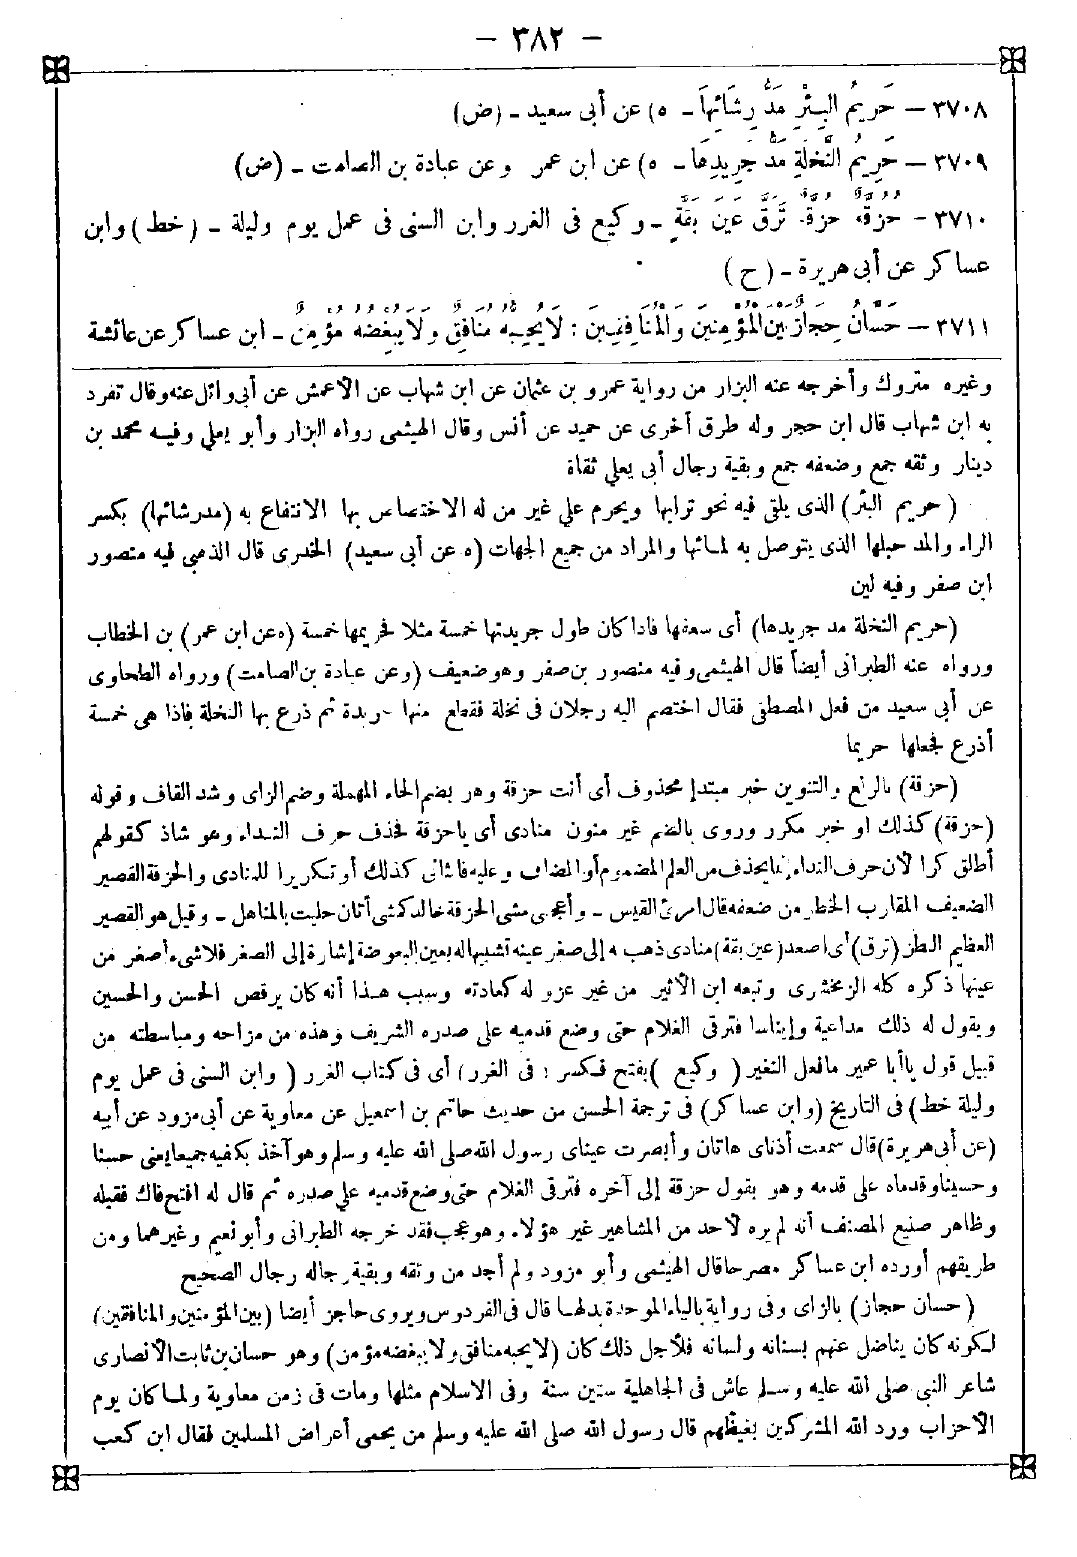 – ٣٨٢ –
٣٧٠٨ – حَرِيمُ الْبِئْرِ مَدُّ رِشَائِهَا - (ه) عن أبى سعيد - (ض)
٣٧٠٩ – حَرِيمُ النَّخْلَةِ مَدُّ جَرِيدِهَا - (ه) عن ابن عمر وعن عبادة بن الصامت - (ض)
٣٧١٠ – حُزُقَّةٌ حُزُقَّةٌ تَرَقَّ عَيْنَ بَقَّةٍ - وكيع فى الغرر وابن السنى فى عمل يوم وليلة - (خط) وابن
عساكر عن أبى هريرة - (ح)
٣٧١١ – حَسَّانُ حِجَازٌ بَيْنَ الْمُؤْمِنِينَ وَالْمُنَافِقِينَ : لَا يُحِبُّهُ مُنَافِقٌ وَلَا يُبْغِضُهُ مُؤْمِنٌ - ابن عساكر عن عائشة
وغيره متروك وأخرجه عنه البزار من رواية عمرو بن عثمان عن ابن شهاب عن الأعمش عن أبى وائل عنه وقال تفرد
به ابن شهاب قال ابن حجر وله طرق أخرى عن حميد عن أنس وقال الهيثمى رواه البزار وأبو يعلى وفيه محمد بن
دينار وثقه جمع وضعفه جمع وبقية رجال أبى يعلى ثقاة
(حريم البئر) الذى يلقى فيه نحو ترابها ويحرم على غير من له الاختصاص بها الانتفاع به (مد رشائها) بكسر
الراء والمد حبلها الذى يتوصل به لمائها والمراد من جميع الجهات (ه عن أبى سعيد) الخدرى قال الذهبى فيه منصور
ابن صقر وفيه لين
(حريم النخلة مد جريدها) أى سعفها فاذا كان طول جريدتها خمسة مثلا فحريمها خمسة (ه عن ابن عمر) بن الخطاب
ورواه عنه الطبرانى أيضاً قال الهيثمى وفيه منصور بن صقر وهو ضعيف (وعن عبادة بن الصامت) ورواه الطحاوى
عن أبى سعيد من فعل المصطفى فقال اختصم اليه رجلان فى نخلة فقطع منها جريدة ثم ذرع بها النخلة فاذا هى خمسة
أذرع فجعلها حريما
(حزقة) بالرفع والتنوين خبر مبتدإ محذوف أى أنت حزقة وهو بضم الحاء المهملة وضم الزاى وشد القاف وقوله
(حزقة) كذلك او خبر مكرر وروى بالضم غير منون منادى أى يا حزقة فحذف حرف النداء وهو شاذ كقولهم
أطلق كرا لأن حرف النداء إنما يحذف من العلم المضموم أو المضاف وعليه فالثانى كذلك أو تكريرا للمنادى والحزقة القصير
الضعيف المقارب الخطو من ضعفه قال امرئ القيس - وأعجبى مشى الحزقة خالد كمشى أتان حليت بالمناهل - وقيل هو القصير
العظيم البطن (ترق) أى اصعد (عين بقة) منادى ذهب به إلى صغر عينه تشبيها له بعين البعوضة إشارة إلى الصغر فلا شىء أصغر من
عينها ذكره كله الزمخشرى وتبعه ابن الأثير من غير عزو له كعادته وسبب هذا أنه كان يرقص الحسن والحسين
ويقول له ذلك مداعبة وإيناسا فترقى الغلام حتى وضع قدميه على صدره الشريف وهذه من مزاحه ومباسطته من
قبيل قول يا أبا عمير ما فعل النغير (وكيع) بفتح فكسر (فى الغرر) أى فى كتاب الغرر (وابن السنى فى عمل يوم
وليلة خط) فى التاريخ (وابن عساكر) فى ترجمة الحسن من حديث حاتم بن اسمعيل عن معاوية عن أبى مزود عن أبيه
(عن أبى هريرة) قال سمعت أذناى هاتان وأبصرت عيناى رسول الله صلى الله عليه وسلم وهو آخذ بكفيه جميعا يعنى حسنا
وحسينا وقدماه على قدمه وهو يقول حزقة إلى آخره فترقى الغلام حتى وضع قدميه على صدره ثم قال له افتح فاك فقبله
وظاهر صنيع المصنف أنه لم يره لأحد من المشاهير غير هؤلاء وهو عجب فقد خرجه الطبرانى وأبو نعيم وغيرهما ومن
طريقهم أورده ابن عساكر مصرحا قال الهيثمى وأبو مزود ولم أجد من وثقه وبقية رجاله رجال الصحيح
(حسان حجاز) بالزاى وفى رواية بالباء الموحدة بدلها قال فى الفردوس ويروى حاجز أيضا (بين المؤمنين والمنافقين)
لكونه كان يناضل عنهم بسنانه ولسانه فلأجل ذلك كان (لا يحبه منافق ولا يبغضه مؤمن) وهو حسان بن ثابت الأنصارى
شاعر النبى صلى الله عليه وسلم عاش فى الجاهلية ستين سنة وفى الاسلام مثلها ومات فى زمن معاوية ولما كان يوم
الأحزاب ورد الله المشركين بغيظهم قال رسول الله صلى الله عليه وسلم من يحمى أعراض المسلمين فقال ابن كعب